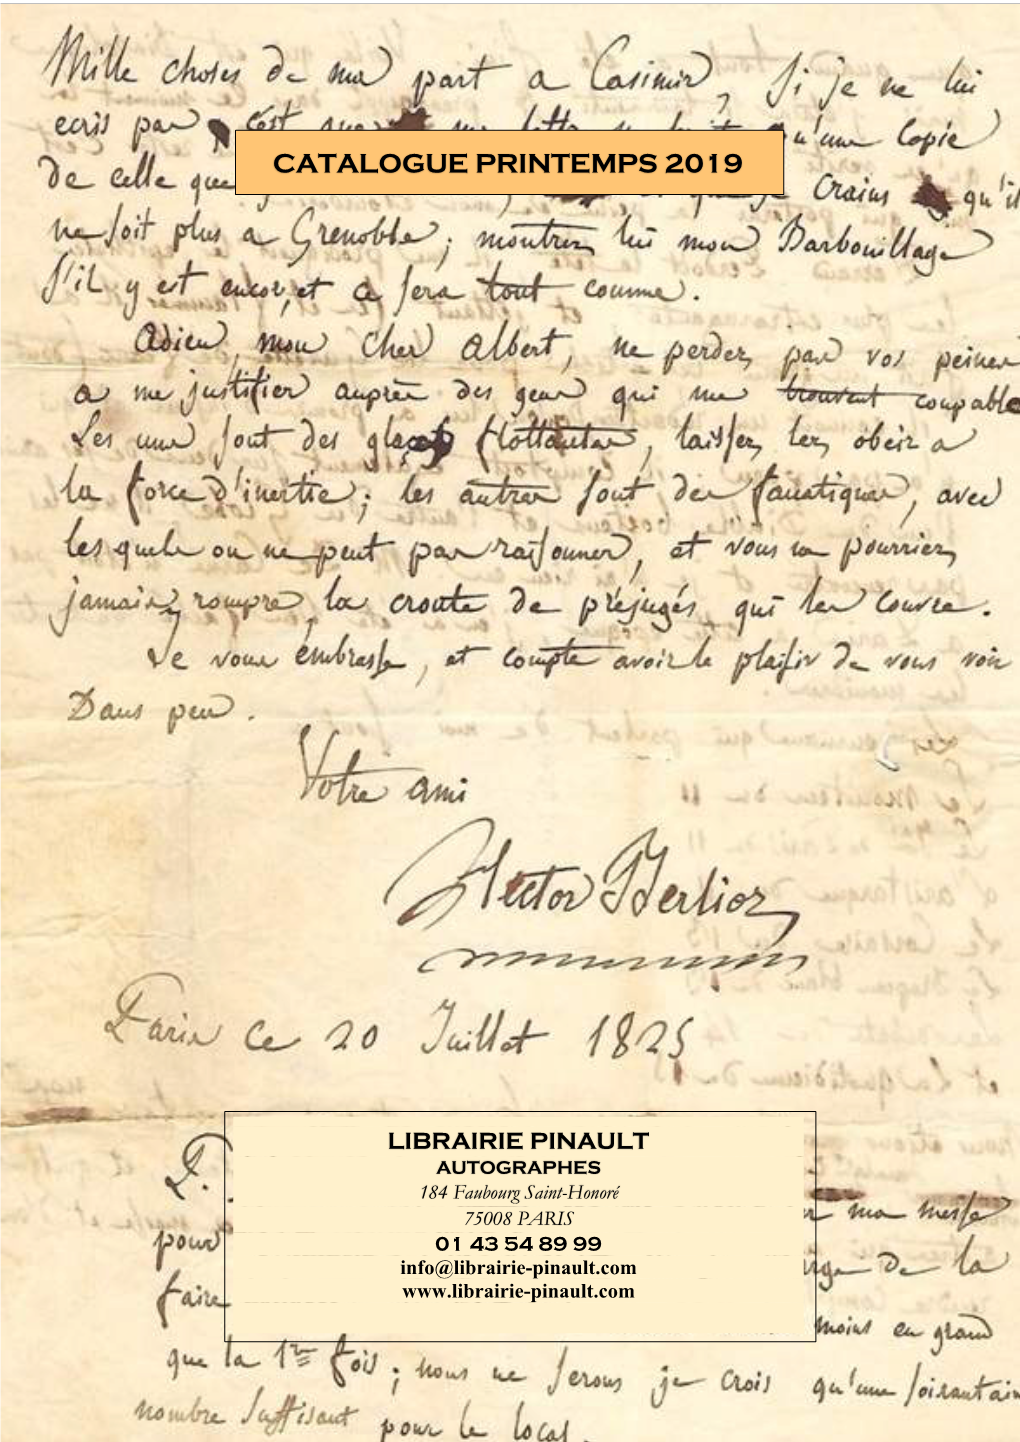 Mille choses de ma part a Casimir, Si je ne lui
ecris pas c'est que ma lettre qu'une Copie
CATALOGUE PRINTEMPS 2019
de celle que crains qu'il
ne soit plus a Grenoble; montrez lui mon Barbouillage
S'il y est encor, et ce sera tout comme.
Adieu, mon cher Albert, ne perdez pas vos peines
a me justifier auprès des gens qui me trouvent coupable
Les uns sont des glaçes flottantes, laissez les obeir a
la force d'inertie; les autres sont des fanatiques, avec
lesquels on ne peut pas raisonner, et vous ne pourriez
jamais rompre la croute de préjugés qui les couvre.
Je vous embrasse, et compte avoir le plaisir de vous voir
Dans peu.
Votre ami
Hector Berlioz
Paris ce 20 Juillet 1825
LIBRAIRIE PINAULT
AUTOGRAPHES
184 Faubourg Saint-Honoré
75008 PARIS
01 43 54 89 99
info@librairie-pinault.com
www.librairie-pinault.com
P.
ma messe
pour de la
faire moins en grand
que la 1re fois; nous ne serons je crois qu'une soixantain
nombre suffisant pour le local.